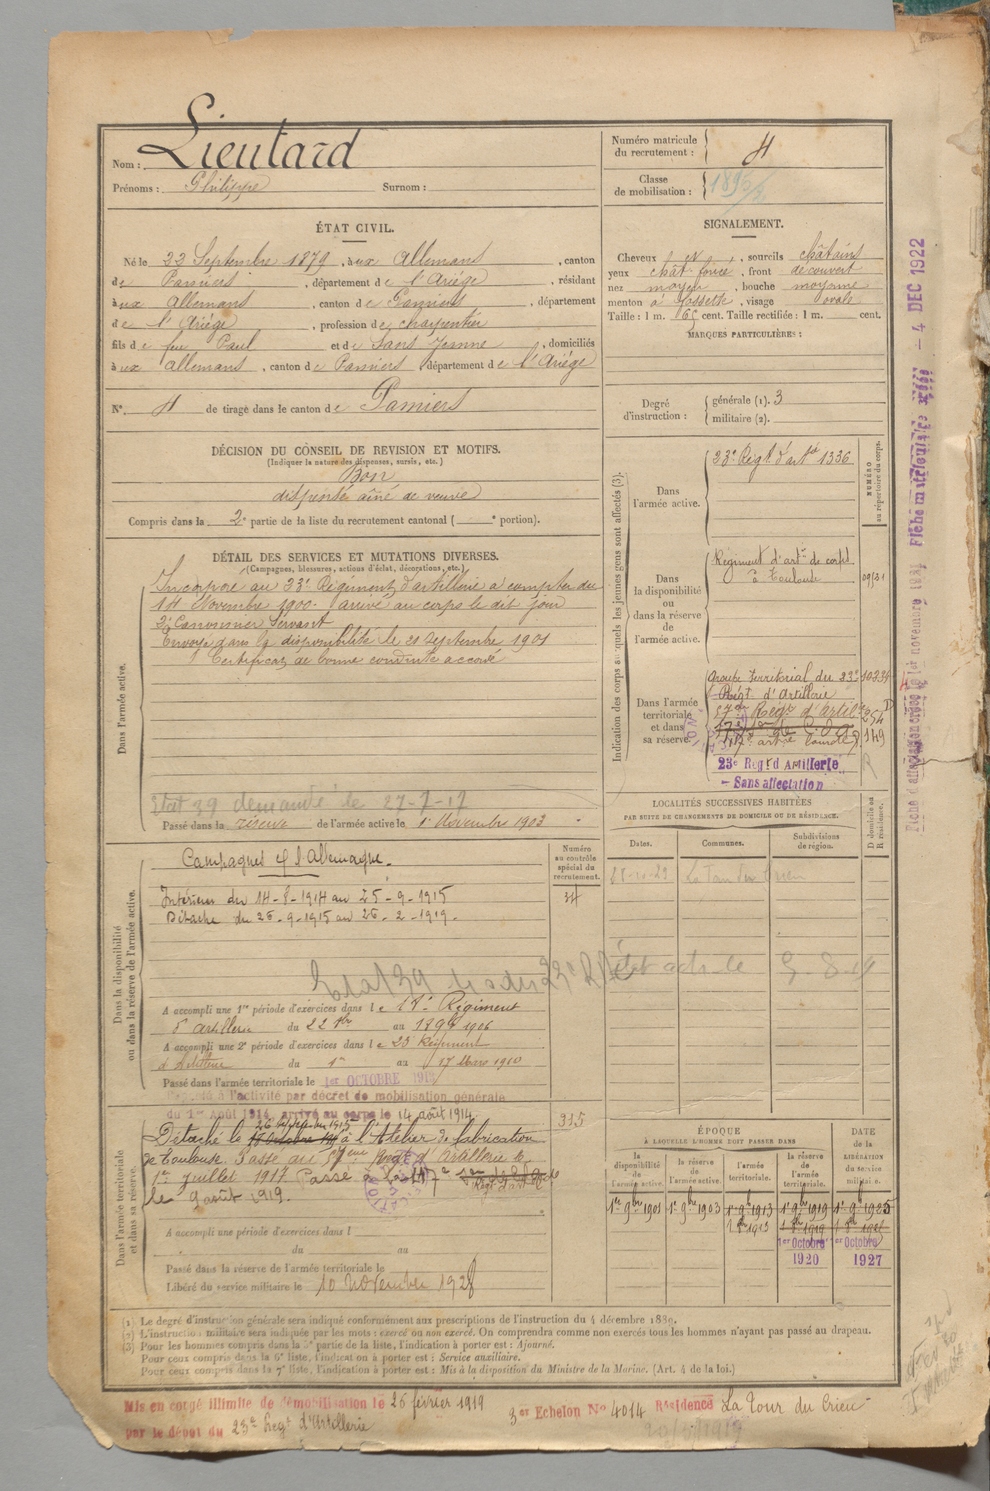 Nom : Lieutard
Prénoms : Philippe Surnom :
Numéro matricule du recrutement : 4
Classe de mobilisation : 189
ÉTAT CIVIL.
Né le 22 Septembre 1879, à ux Allemans, canton
de Pamiers, département de l'Ariège, résidant
à ux Allemans, canton de Pamiers, département
de l'Ariège, profession de charpentier
fils de feu Paul et de Sans Jeanne, domiciliés
à ux Allemans, canton de Pamiers département de l'Ariège
N° 4 de tirage dans le canton de Pamiers
SIGNALEMENT.
Cheveux , sourcils châtains
yeux chât foncé, front découvert
nez moyen, bouche moyenne
menton à fossette, visage ovale
Taille : 1 m. 65 cent. Taille rectifiée : 1 m. cent.
MARQUES PARTICULIÈRES :
Degré d'instruction : générale (1). 3
militaire (2).
DÉCISION DU CONSEIL DE REVISION ET MOTIFS.
(Indiquer la nature des dispenses, sursis, etc.)
Bon
dispensé aîné de veuve
Compris dans la 2e partie de la liste du recrutement cantonal ( e portion).
DÉTAIL DES SERVICES ET MUTATIONS DIVERSES.
(Campagnes, blessures, actions d'éclat, décorations, etc.)
Dans l'armée active.
Incorporé au 23e Régiment d'artillerie à compter du
14 Novembre 1900. arrivé au corps le dit jour
2e Canonnier Servant
Envoyé dans la disponibilité le 21 Septembre 1901
Certificat de bonne conduite accordé
Etat 39 demandé le 27-7-17
Passé dans la réserve de l'armée active le 1er Novembre 1903
Indication des corps auxquels les jeunes gens sont affectés (3).
NUMÉRO au répertoire du corps.
Dans l'armée active.
23e Régt d'artie 1336
Dans la disponibilité ou dans la réserve de l'armée active.
Régiment d'artie de corps
à Toulouse
Dans l'armée territoriale et dans sa réserve.
Groupe territorial du 23e 10234
Régt d'Artillerie
57e Régt d'Artil 254
149
23e Regt d'Artillerie
Sans affectation
LOCALITÉS SUCCESSIVES HABITÉES
PAR SUITE DE CHANGEMENTS DE DOMICILE OU DE RÉSIDENCE.
Dates. Communes. Subdivisions de région. D domicile ou R résidence.
La Tour du Crieu
Dans la disponibilité ou dans la réserve de l'armée active.
Numéro au contrôle spécial du recrutement.
Campagnes c/ l'Allemagne.
Intérieur du 14-8-1914 au 25-9-1915
Détaché du 26-9-1915 au 26-2-1919.
A accompli une 1re période d'exercices dans le 18e Régiment
d'artillerie du 22 au 1906
A accompli une 2e période d'exercices dans le 23 Régiment
d'Artillerie du 1er au 17 Mars 1910
Passé dans l'armée territoriale le 1er OCTOBRE 191
à l'activité par décret de mobilisation générale
du 1er Août 1914, arrivé au corps le 14 août 1914
315
Dans l'armée territoriale et dans sa réserve.
Détaché le 18 Octobre à l'Atelier de fabrication
de Toulouse. Passé au 57ème Régt d'Artillerie le
1er juillet 1917. Passé
le 9 août 1919.
A accompli une période d'exercices dans l
du au
Passé dans la réserve de l'armée territoriale le
Libéré du service militaire le 10 Novembre 1928
ÉPOQUE
A LAQUELLE L'HOMME DOIT PASSER DANS
la disponibilité de l'armée active. la réserve de l'armée active. l'armée territoriale. la réserve de l'armée territoriale.
DATE de la LIBÉRATION du service militaire.
1er 9bre 1901 1er 9bre 1903 1er 9bre 1913 1er 9bre 1919 1er 9bre 1925
1er Octobre 1920 1er Octobre 1927
(1) Le degré d'instruction générale sera indiqué conformément aux prescriptions de l'instruction du 4 décembre 1889.
(2) L'instruction militaire sera indiquée par les mots : exercé ou non exercé. On comprendra comme non exercés tous les hommes n'ayant pas passé au drapeau.
(3) Pour les hommes compris dans la 5e partie de la liste, l'indication à porter est : Ajourné.
Pour ceux compris dans la 6e liste, l'indication à porter est : Service auxiliaire.
Pour ceux compris dans la 7e liste, l'indication à porter est : Mis à la disposition du Ministre de la Marine. (Art. 4 de la loi.)
Mis en congé illimité de démobilisation le 26 février 1919
par le dépôt du 23e Régt d'Artillerie
3er Echelon No 4014 Résidence La Tour du Crieu
4 DEC 1922